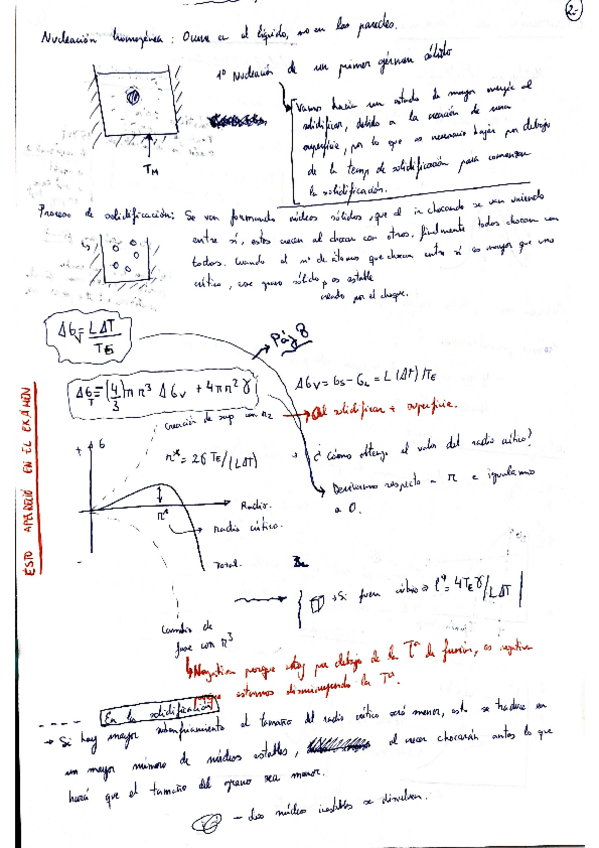 2.-
Nucleación homogénea: Ocurre en el líquido, no en las paredes.
1º Nucleación de un primer gérmen sólido
Vamos hacia un estado de mayor energía al
solidificar, debido a la creación de una
superficie, por lo que es necesario bajar por debajo
de la temp de solidificación para comenzar
la solidificación.
TM
Proceso de solidificación: Se van formando núcleos sólidos, que al ir chocando se van uniendo
entre sí, estos crecen al chocar con otros. finalmente todos chocan con
todos. Cuando el nº de átomos que chocan entre sí es mayor que uno
crítico, ese sólido es estable
creado por el choque.
ΔGv = LΔT/TE
Pág 8
ΔGT = (4/3)πr³ ΔGv + 4πr²γ
ΔGv = GS - GL = L(ΔT)/TE
Creación de sup con r2
Al solidificar + superficie.
ÉSTO APARECIÓ EN EL EXÁMEN
+ G
r* = 2GTE/(LΔT)
¿Cómo obtengo el valor del radio crítico?
Derivamos respecto a r e igualamos
a 0.
Radio.
r*
radio crítico.
-
Total.
Si fuera cúbico l* = 4TEγ/LΔT
Cambio de
fase con R³
Negativa porque estoy por debajo de la Tª de fusión, es negativa
estamos disminuyendo la Tª.
En la solidificación
Si hay mayor subenfriamiento el tamaño del radio crítico será menor, esto se traduce en
un mayor número de núcleos estables, al crecer chocarán antes lo que
hará que el tamaño del grano sea menor.
- Los núcleos inestables se disuelven.